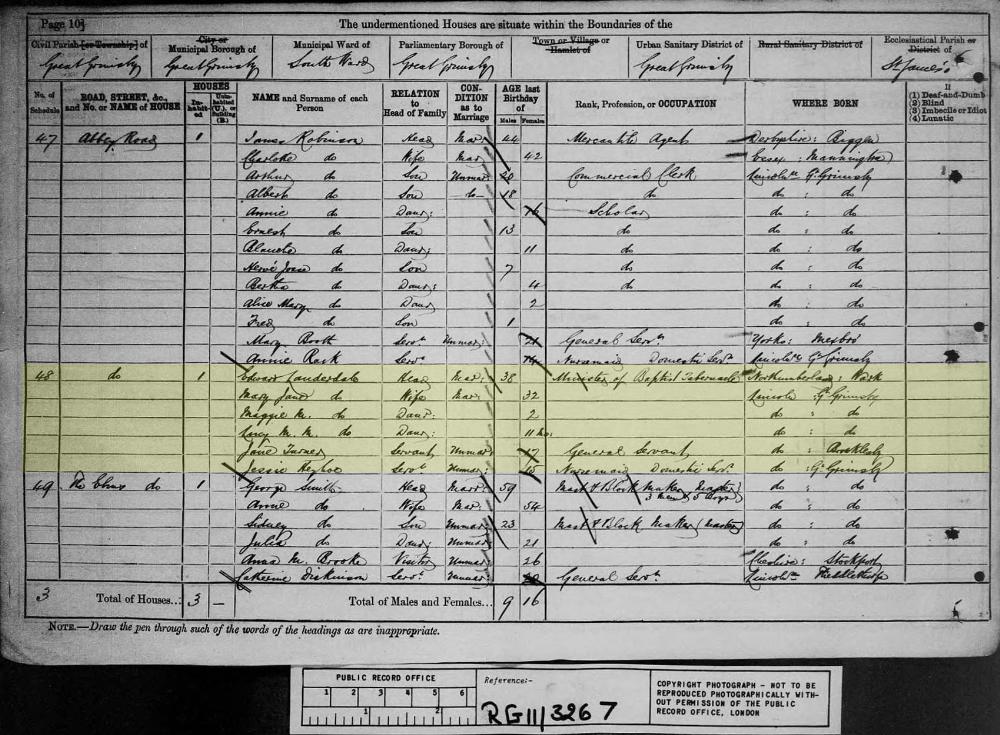 Page 10
The undermentioned Houses are situate within the Boundaries of the
Civil Parish [or Township] of
City or Municipal Borough of
Municipal Ward of
Parliamentary Borough of
Town or Village or Hamlet of
Urban Sanitary District of
Rural Sanitary District of
Ecclesiastical Parish or District of
Great Grimsby Great Grimsby South Ward Great Grimsby Great Grimsby St James's
No. of Schedule
ROAD, STREET, &c., and No. or NAME of HOUSE
HOUSES
Inhabited
Uninhabited (U.), or Building (B.)
NAME and Surname of each Person
RELATION to Head of Family
CONDITION as to Marriage
AGE last Birthday of
Males Females
Rank, Profession, or OCCUPATION
WHERE BORN
If
(1) Deaf-and-Dumb
(2) Blind
(3) Imbecile or Idiot
(4) Lunatic
47 Abbey Road 1 James Robinson Head Mar: 44 Mercantile Agent Derbyshire:
Charlotte do Wife Mar: 42 Essex:
Arthur do Son Unmar: 20 Commercial Clerk Lincolns: Gt Grimsby
Albert do Son do 18 do do : do
Annie do Daur: 16 Scholar do : do
Ernest do Son 13 do do : do
Blanche do Daur: 11 do do : do
do Son 7 do do : do
Bertha do Daur: 4 do do : do
Alice Mary do Daur 2 do : do
Fred do Son 1 do : do
Mary Booth Servt Unmar: 21 General Servt Yorks: Mexbro'
Annie Rack Servt 14 Nursemaid Domestic Servt Lincolns Gt Grimsby
48 do 1 Edward Lauderdale Head Mar: 38 Minister of Baptist Tabernacle Northumberland: Wark
Mary Jane do Wife Mar: 32 Lincoln: Gt Grimsby
Maggie M. do Daur: 2 do : do
Lucy M. M. do Daur: 11 Mo: do : do
Jane Turner Servant Unmar: 17 General Servant do : Brocklesby
Jessie Servt Unmar: 15 Nursemaid Domestic Servt do : Gt Grimsby
49 The do 1 George Smith Head Mar: 59 Mast & Block Maker (Master) do : do
3 Men & 5 Boys
Annie do Wife Mar: 54 do : do
Sidney do Son Unmar: 23 Mast & Block Maker (Master) do : do
Julia do Daur: Unmar: 21 do : do
Anna M. Brooke Visitor Unmar: 26 Cheshire: Stockport
Catherine Dickinson Servt Unmar: 20 General Servt Lincolns: Theddlethorpe
3 Total of Houses... 3 — Total of Males and Females... 9 16
NOTE.—Draw the pen through such of the words of the headings as are inappropriate.
PUBLIC RECORD OFFICE
1 2 3 4 5 6
1 2
Reference:-
RG 11/3267
COPYRIGHT PHOTOGRAPH - NOT TO BE
REPRODUCED PHOTOGRAPHICALLY WITH-
OUT PERMISSION OF THE PUBLIC
RECORD OFFICE, LONDON